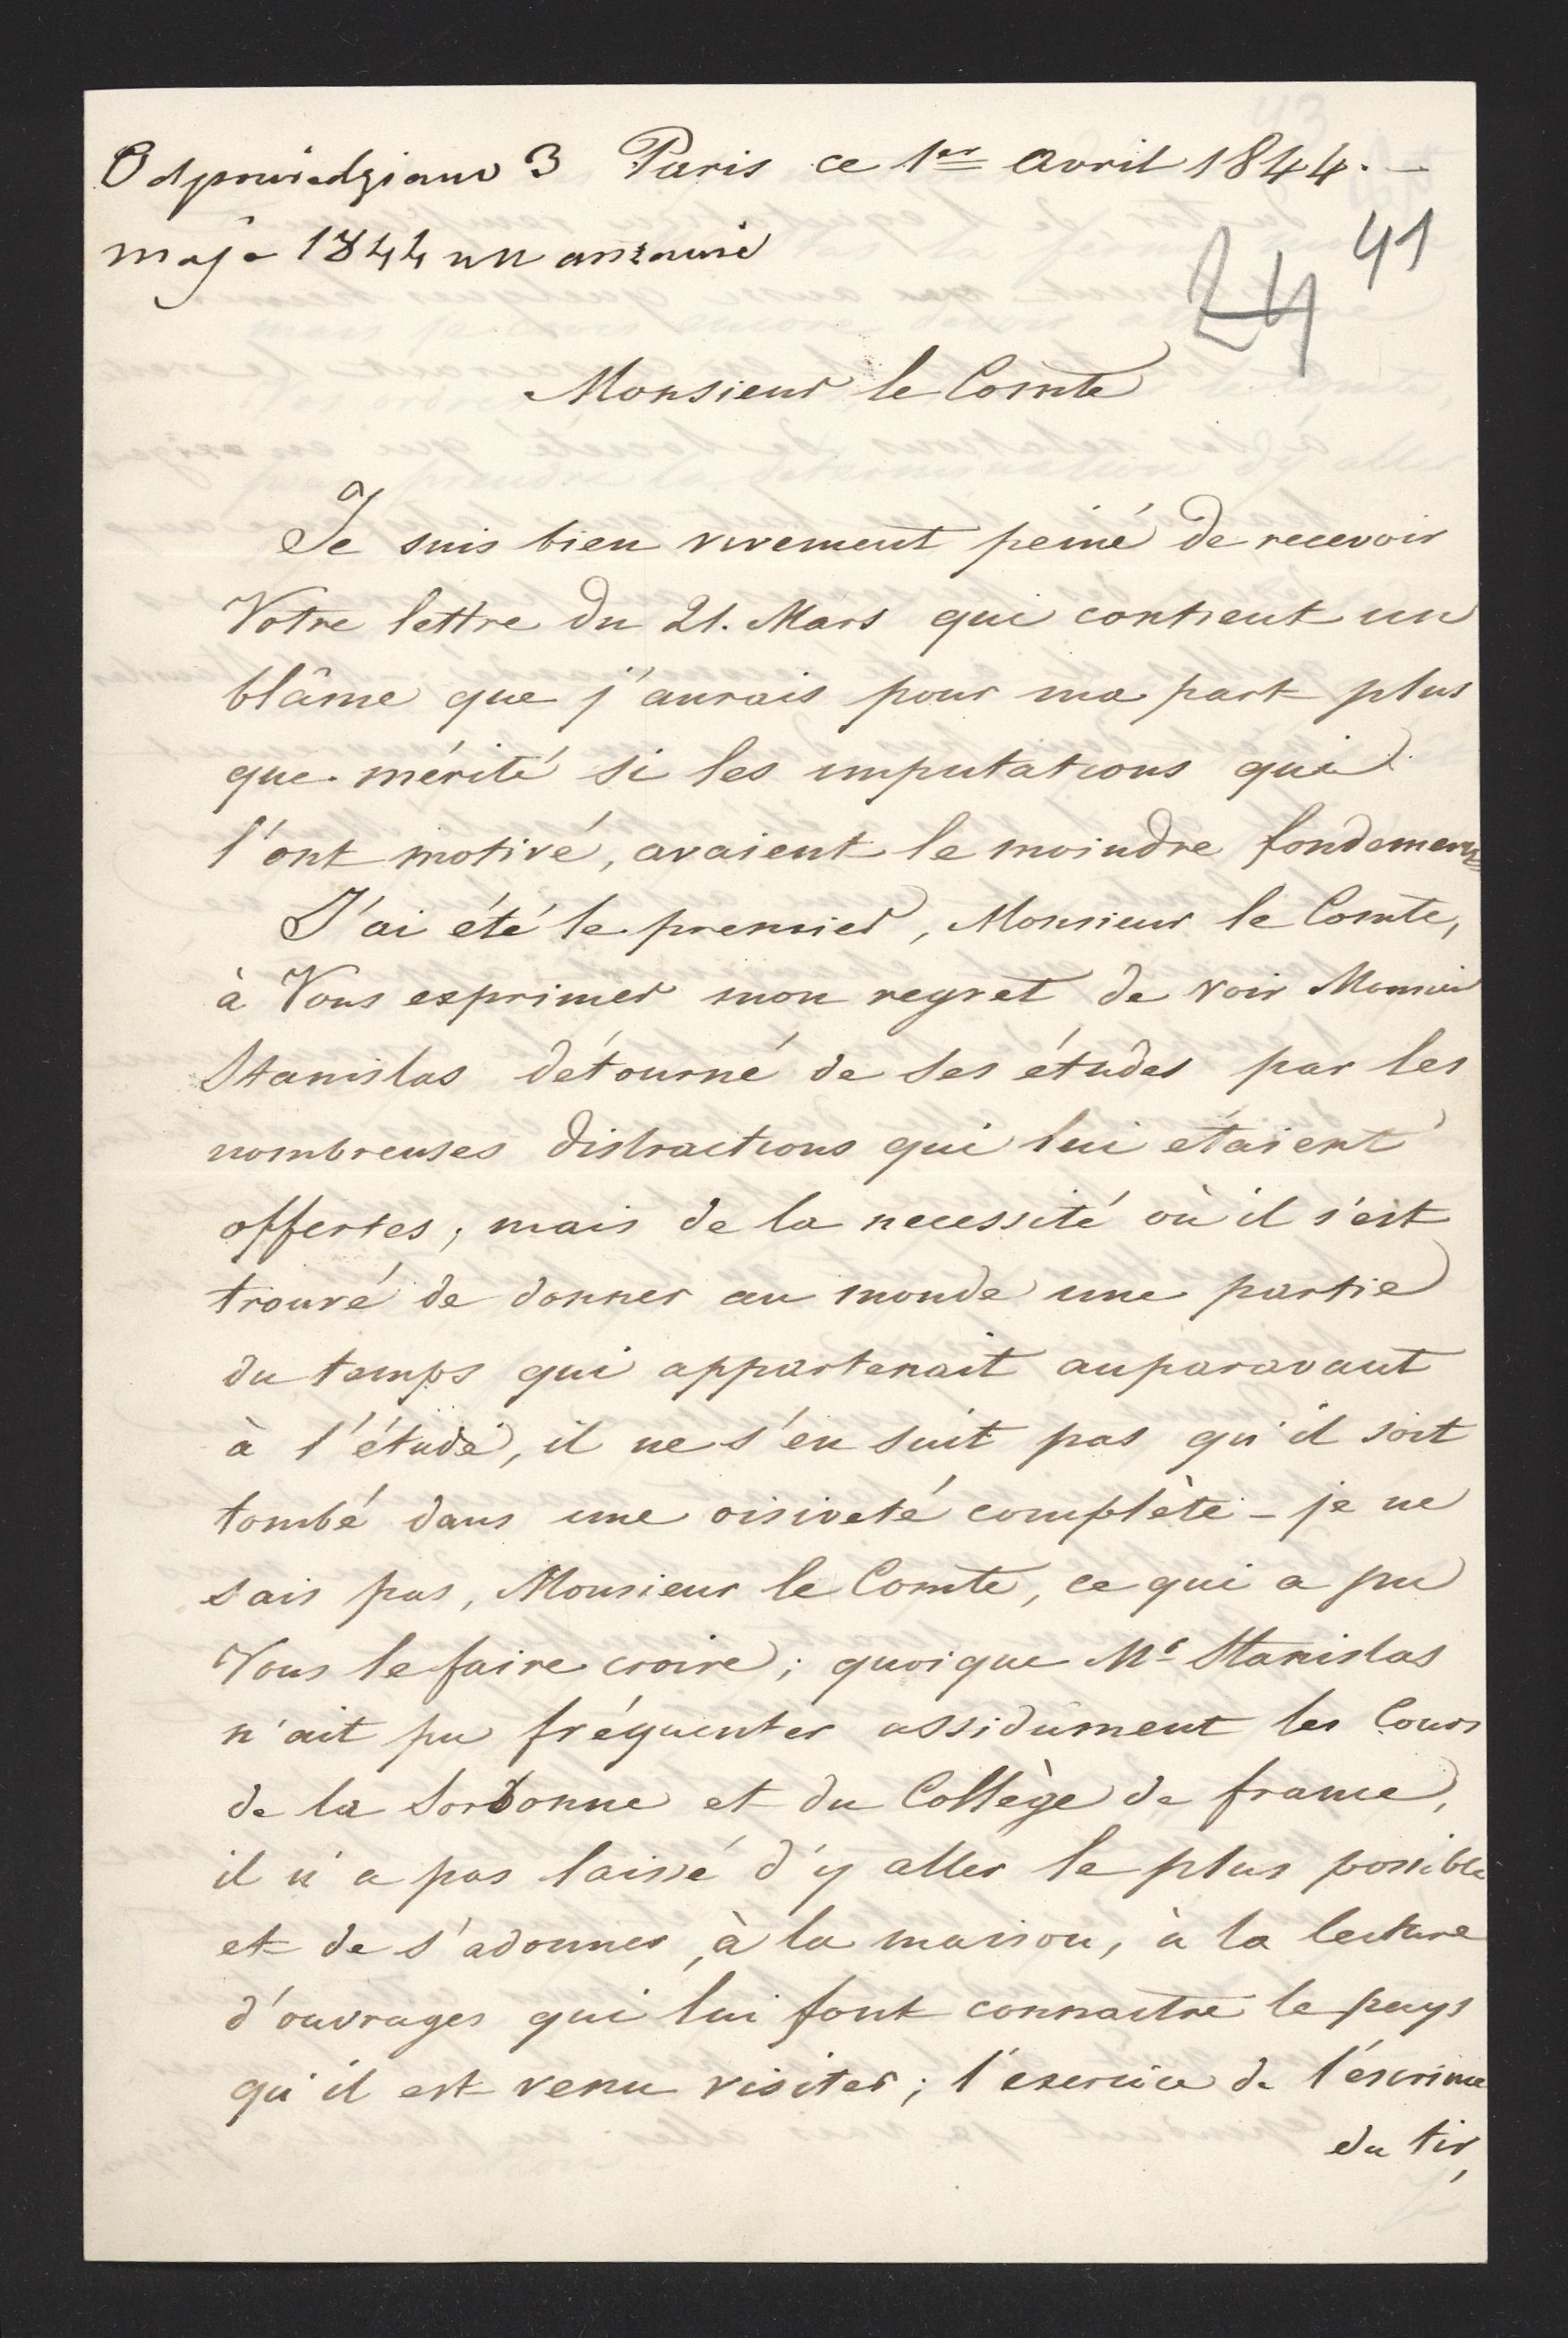 Odpowiedziano 3 Paris ce 1er avril 1844. —
maja 1844
41
24
Monsieur le Comte
Je suis bien vivement peiné de recevoir
Votre lettre du 21. Mars qui contient un
blâme que j'aurais pour ma part plus
que mérité si les imputations qui
l'ont motivé, avaient le moindre fondement
J'ai été le premier, Monsieur le Comte,
à Vous exprimer mon regret de voir Monsieur
Stanislas détourné de ses études par les
nombreuses distractions qui lui étaient
offertes; mais de la necessité où il s'est
trouvé de donner au monde une partie
du temps qui appartenait auparavant
à l'étude, il ne s'en suit pas qu'il soit
tombé dans une oisiveté complète - je ne
sais pas, Monsieur le Comte, ce qui a pu
Vous le faire croire; quoique Mr Stanislas
n'ait pu fréquenter assidument les Cours
de la Sorbonne et du Collège de france,
il n'a pas laissé d'y aller le plus possible
et de s'adonner, à la maison, à la lecture
d'ouvrages qui lui font connaitre le pays
qu'il est venu visiter; l'exercice de l'éscrime
du tir,